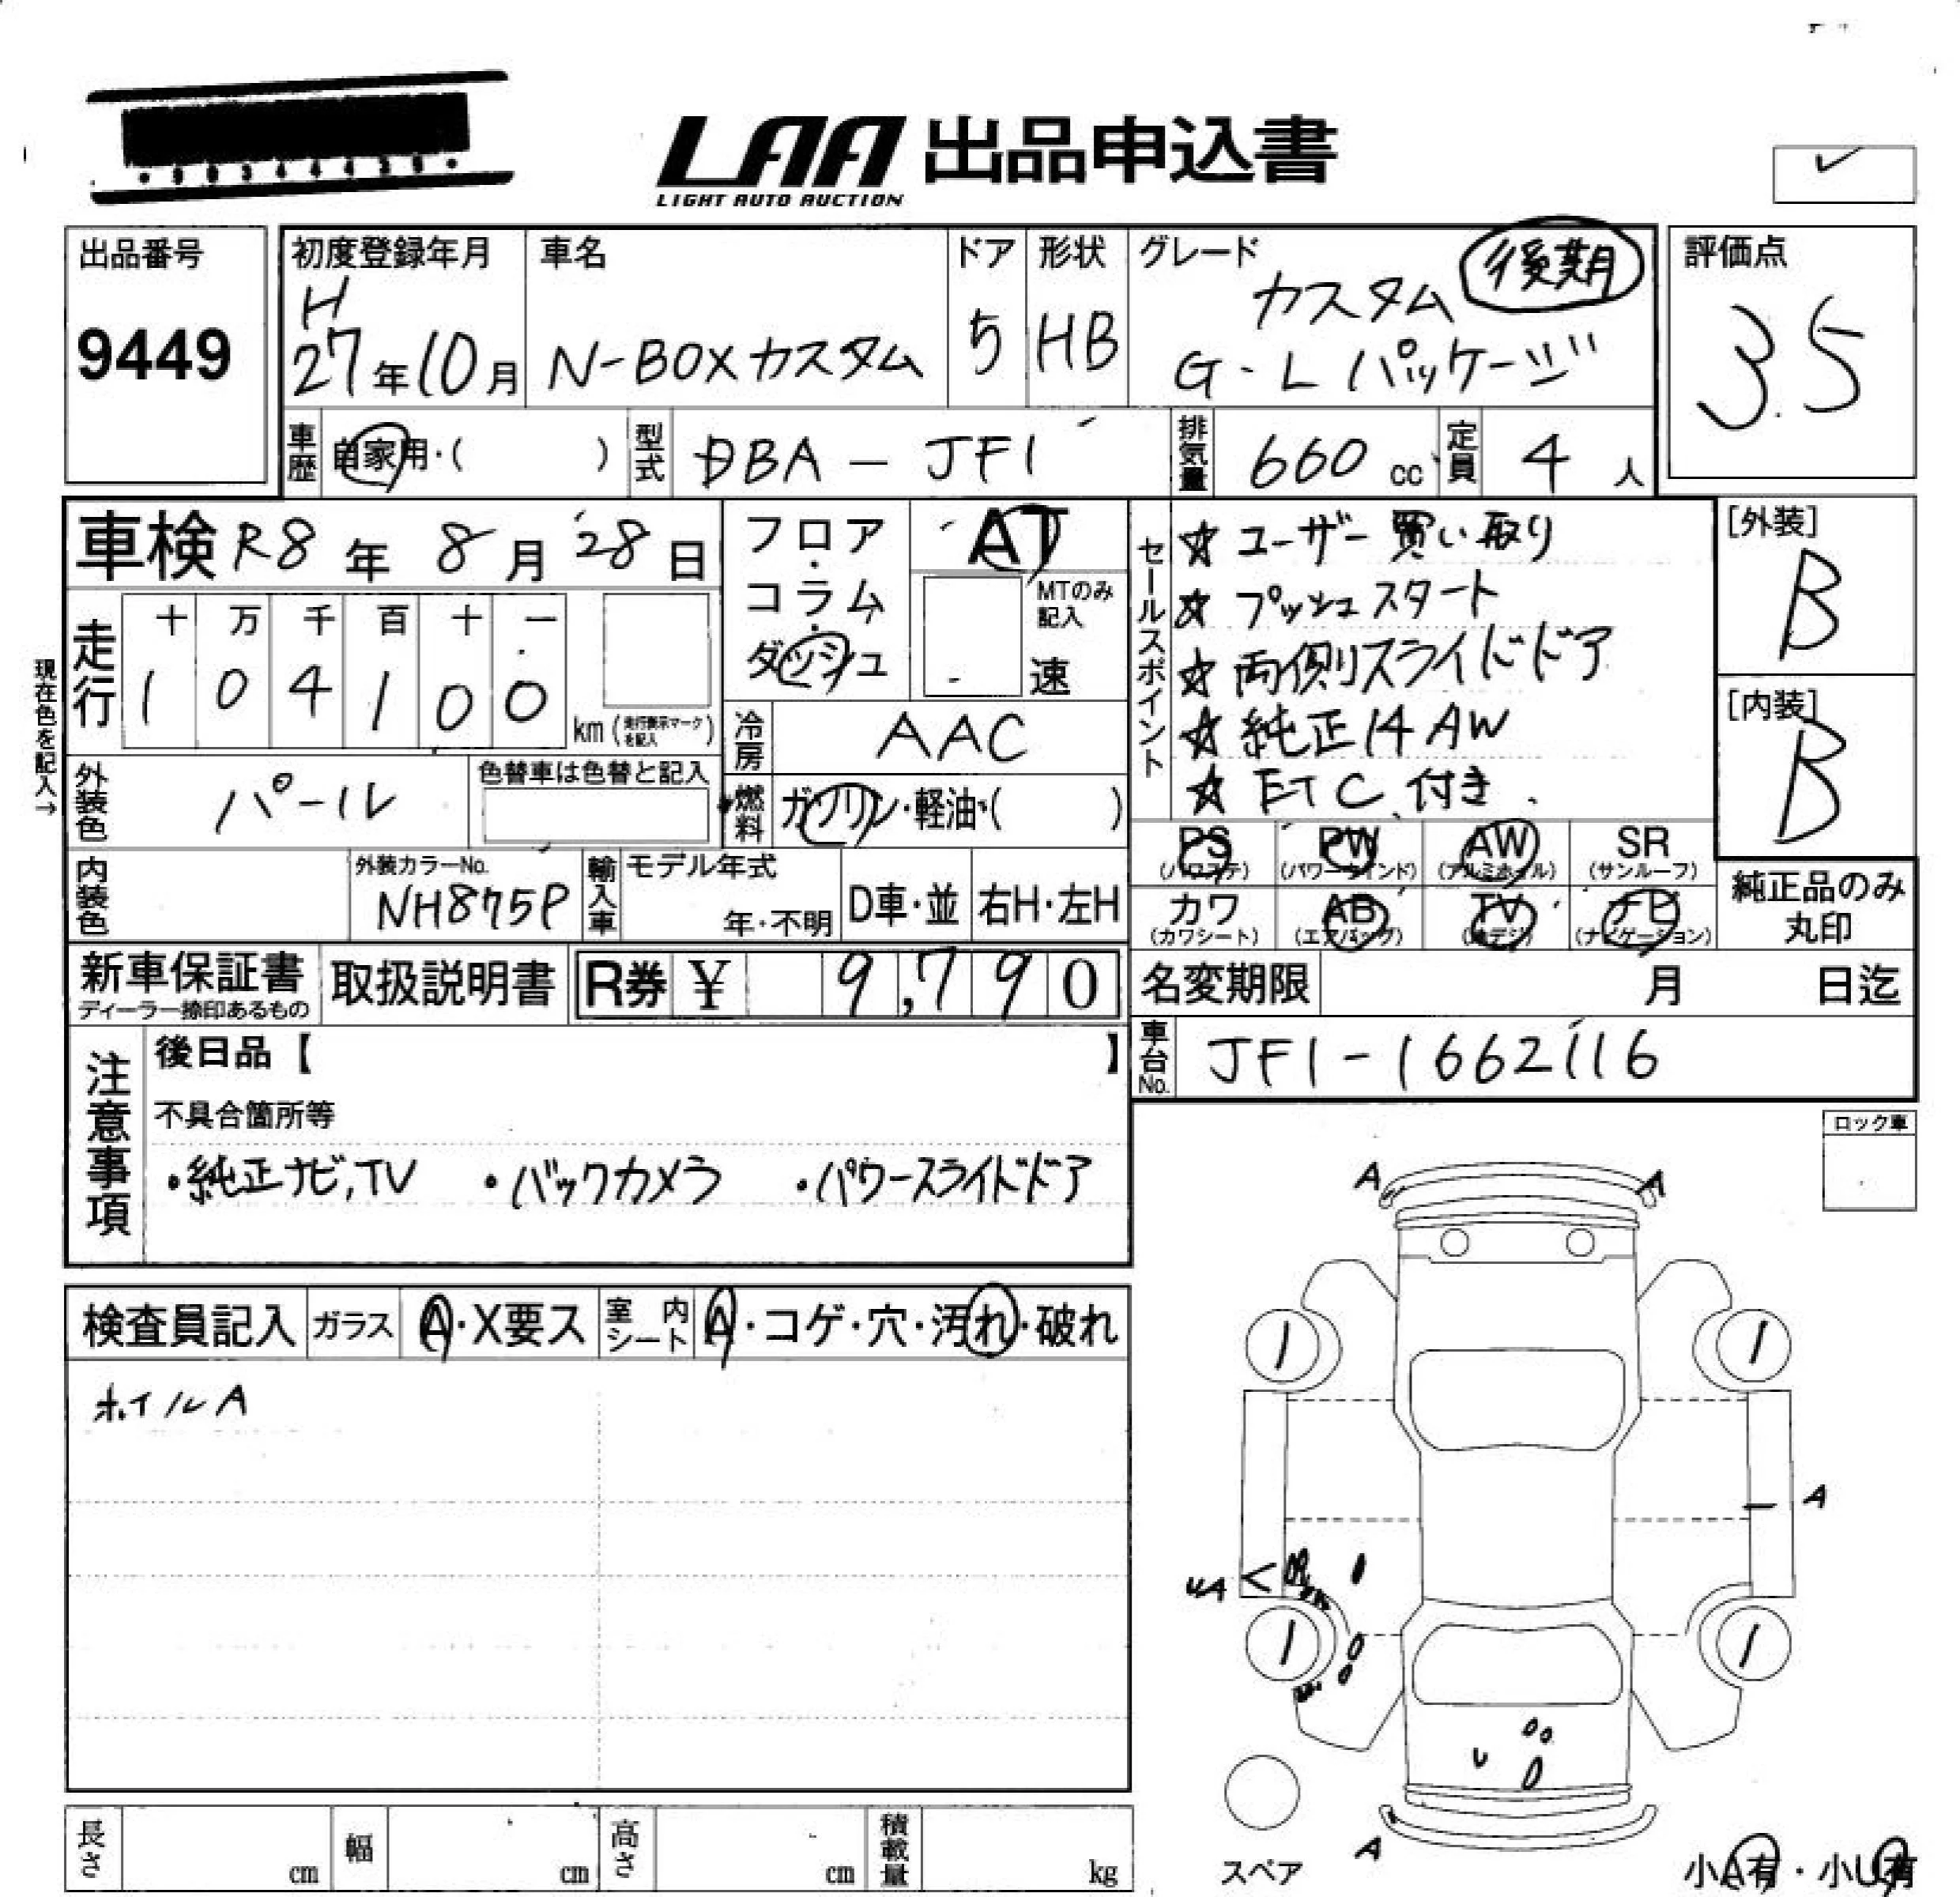 LAA 出品申込書
LIGHT AUTO AUCTION
出品番号
9449
初度登録年月
H
27年10月
車名
N-BOXカスタム
ドア
5
形状
HB
グレード
後期
カスタム
G・Lパッケージ
評価点
3.5
車歴
自家用・(　　)
型式
DBA－JF1
排気量
660 cc
定員
4 人
車検 R8年 8月 28日
走行
十 万 千 百 十 一
1 0 4 1 0 0
km(走行表示マークを記入)
現在色を記入→
外装色
パール
色替車は色替と記入
内装色
外装カラーNo.
NH875P
輸入車
モデル年式
年・不明
D車・並
右H・左H
フロア・コラム・ダッシュ
AT
MTのみ記入
速
冷房
AAC
燃料
ガソリン・軽油・(　　)
セールスポイント
☆ ユーザー買い取り
☆ プッシュスタート
☆ 両側スライドドア
☆ 純正14AW
☆ ETC付き
[外装]
B
[内装]
B
PS
(パワステ)
PW
(パワーウインド)
AW
(アルミホイル)
SR
(サンルーフ)
カワ
(カワシート)
AB
(エアバッグ)
TV
(地デジ)
ナビ
(ナビゲーション)
純正品のみ丸印
新車保証書
ディーラー捺印あるもの
取扱説明書
R券 ¥ 9,790
名変期限　月　日迄
車台No.
JF1-1662116
注意事項
後日品【　　】
不具合箇所等
・純正ナビ,TV ・バックカメラ ・パワースライドドア
ロック車
検査員記入
ガラス
A・X要ス
室内シート
A・コゲ・穴・汚れ・破れ
ホイルA
A
A
A
UA
U
A
1
1
1
1
スペア
小A有・小U有
長さ cm
幅 cm
高さ cm
積載量 kg